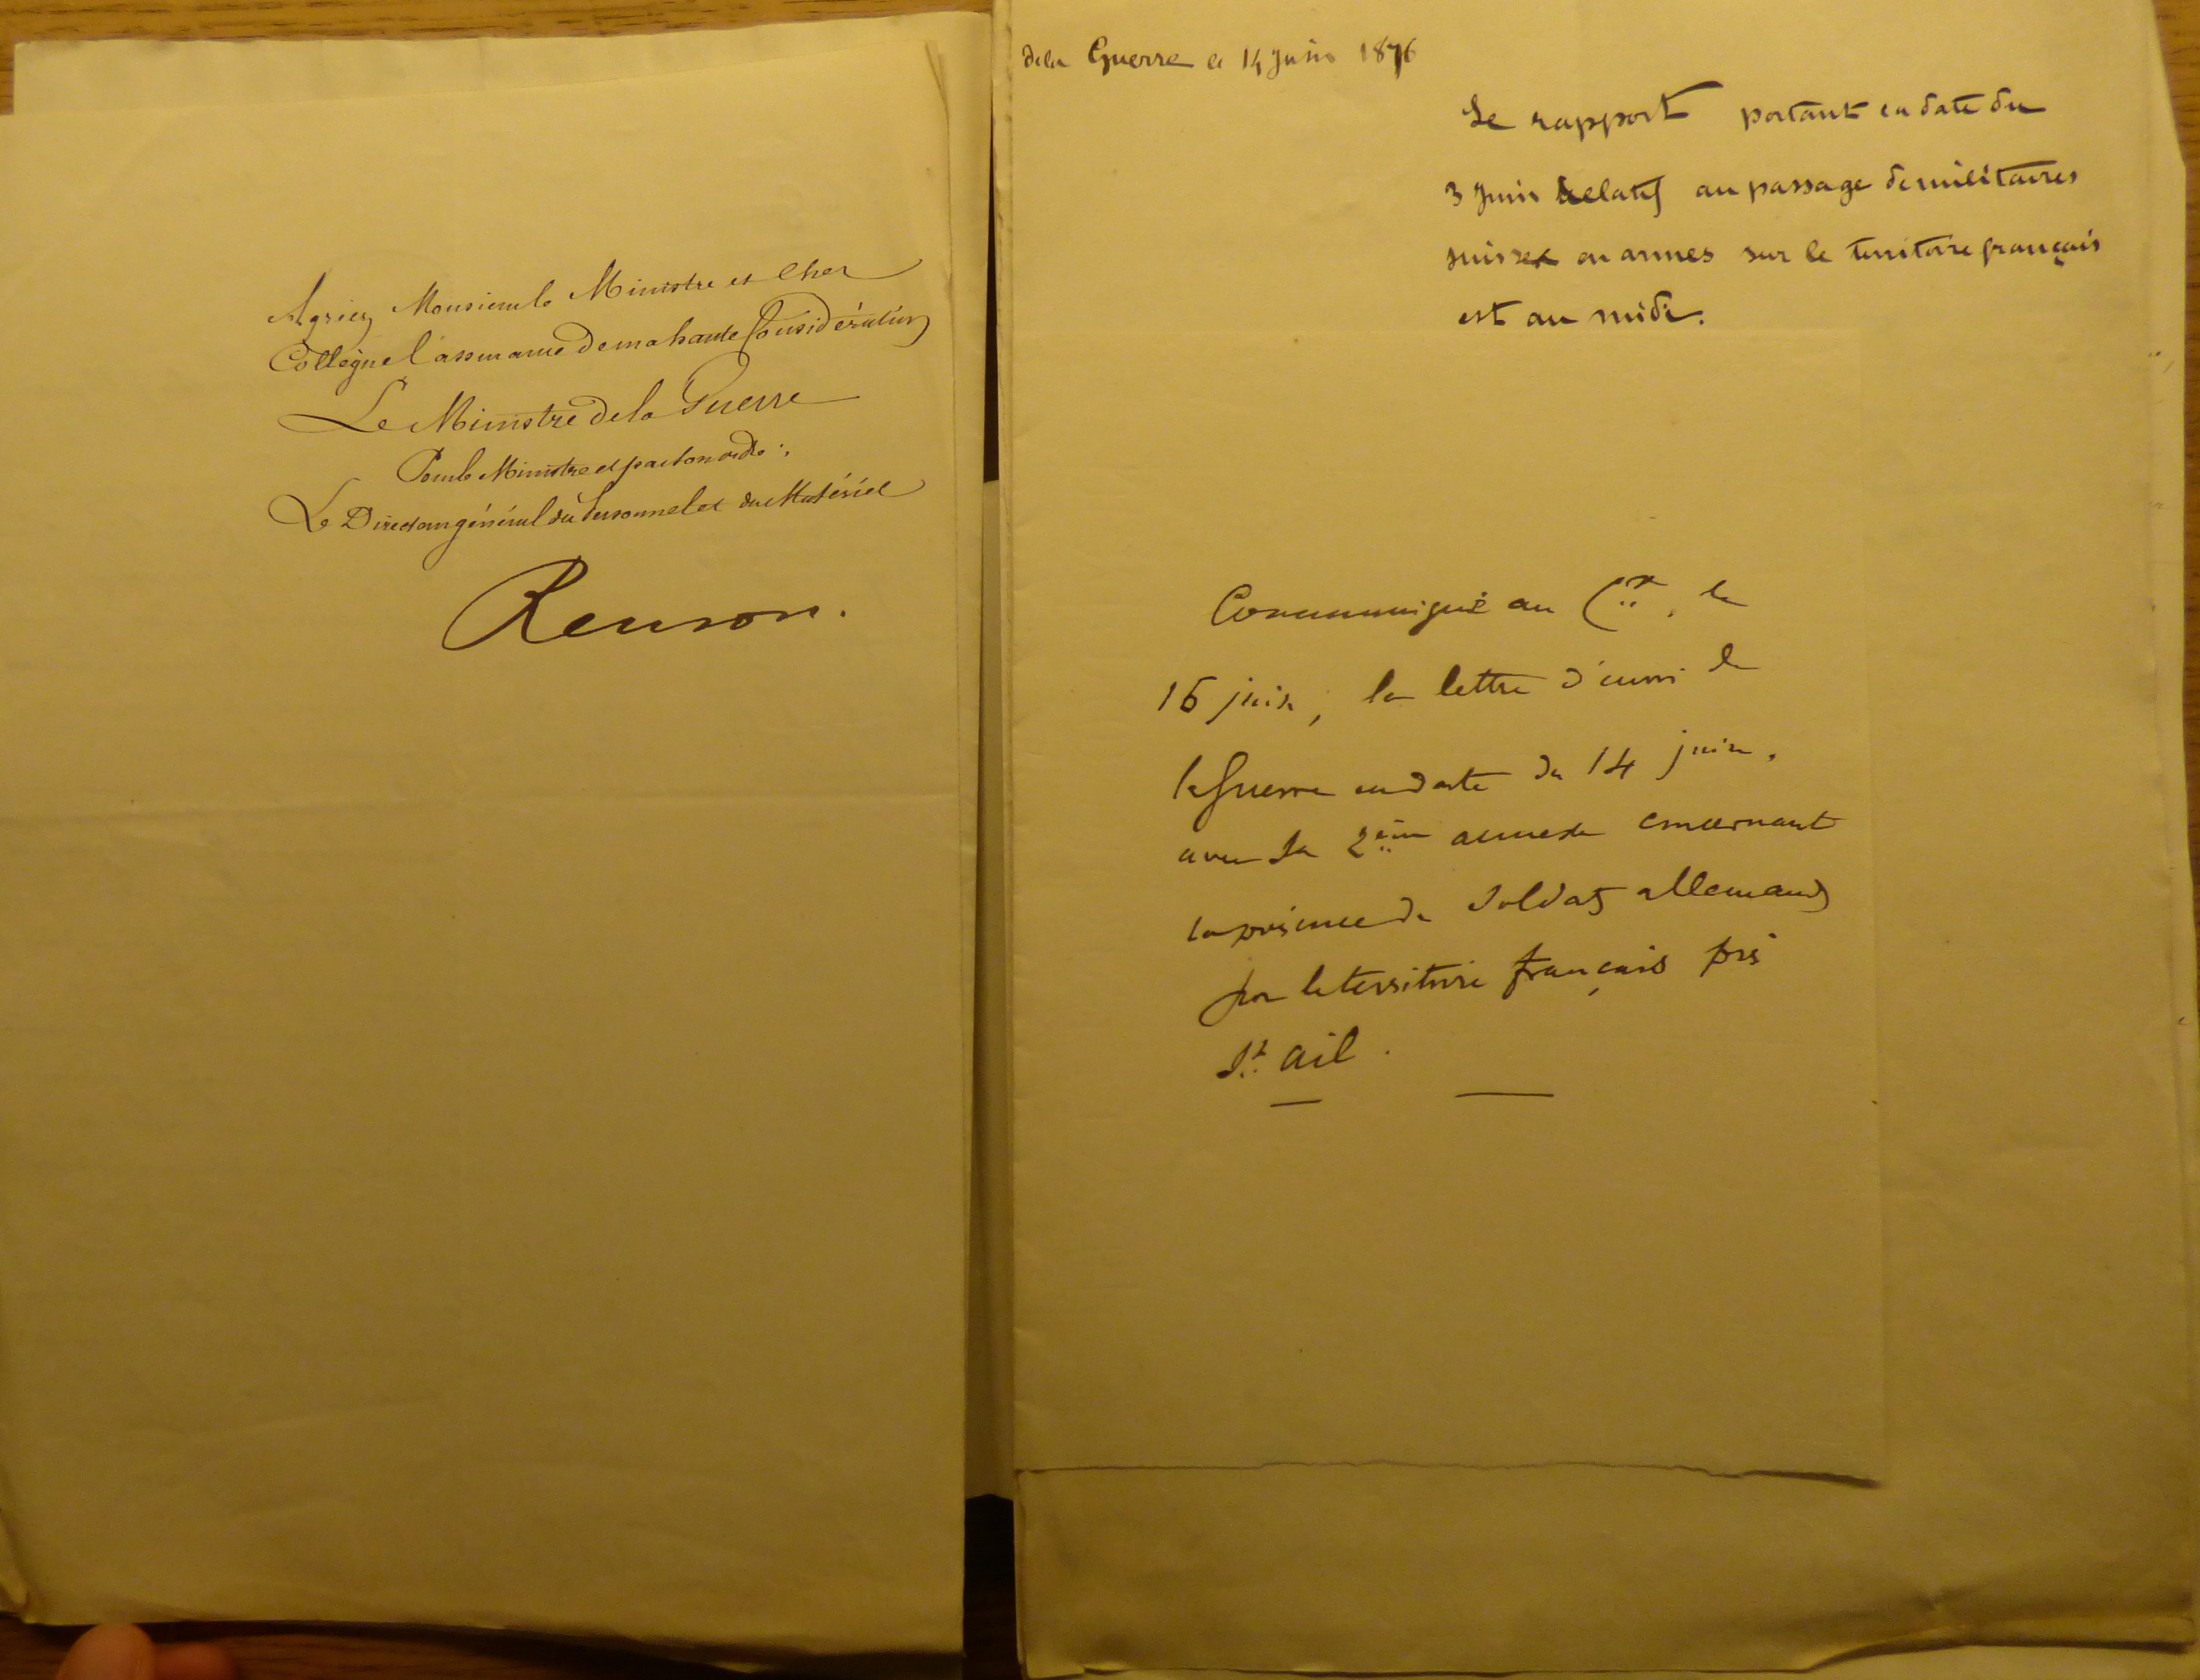 Agréez Monsieur le Ministre et Cher
Collègue l'assurance de ma haute Considération
Le Ministre de la Guerre
Pour le Ministre et par son ordre :
Le Directeur général du Personnel et du Matériel
Renson.
de la Guerre le 14 Juin 1876
Le rapport portant en date du
3 Juin Relatif au passage de militaires
suisses en armes sur le territoire français
est au midi.
Communiqué au le
16 juin, la lettre d'envoi de
la Guerre en date du 14 juin,
avec la 2ème annexe concernant
la présence de Soldats allemands
sur le territoire français près
St Ail.